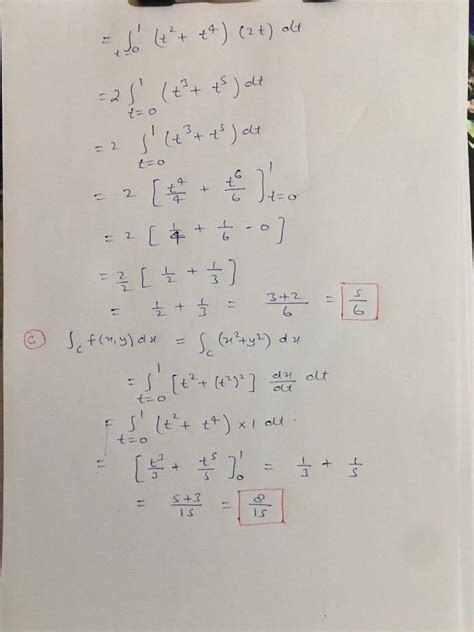 = ∫_{t=0}^{1} (t² + t⁴) (2t) dt
= 2 ∫_{t=0}^{1} (t³ + t⁵) dt
= 2 ∫_{t=0}^{1} (t³ + t⁵) dt
= 2 [ t⁴/4 + t⁶/6 ]_{t=0}^{1}
= 2 [ 1/4 + 1/6 - 0 ]
= 2/2 [ 1/2 + 1/3 ]
= 1/2 + 1/3 = (3+2)/6 = 5/6
(c) ∫_C f(x,y) dx = ∫_C (x²+y²) dx
= ∫_{t=0}^{1} [t² + (t²)²] dx/dt dt
= ∫_{t=0}^{1} (t² + t⁴) × 1 dt.
= [ t³/3 + t⁵/5 ]_0^1 = 1/3 + 1/5
= (5+3)/15 = 8/15